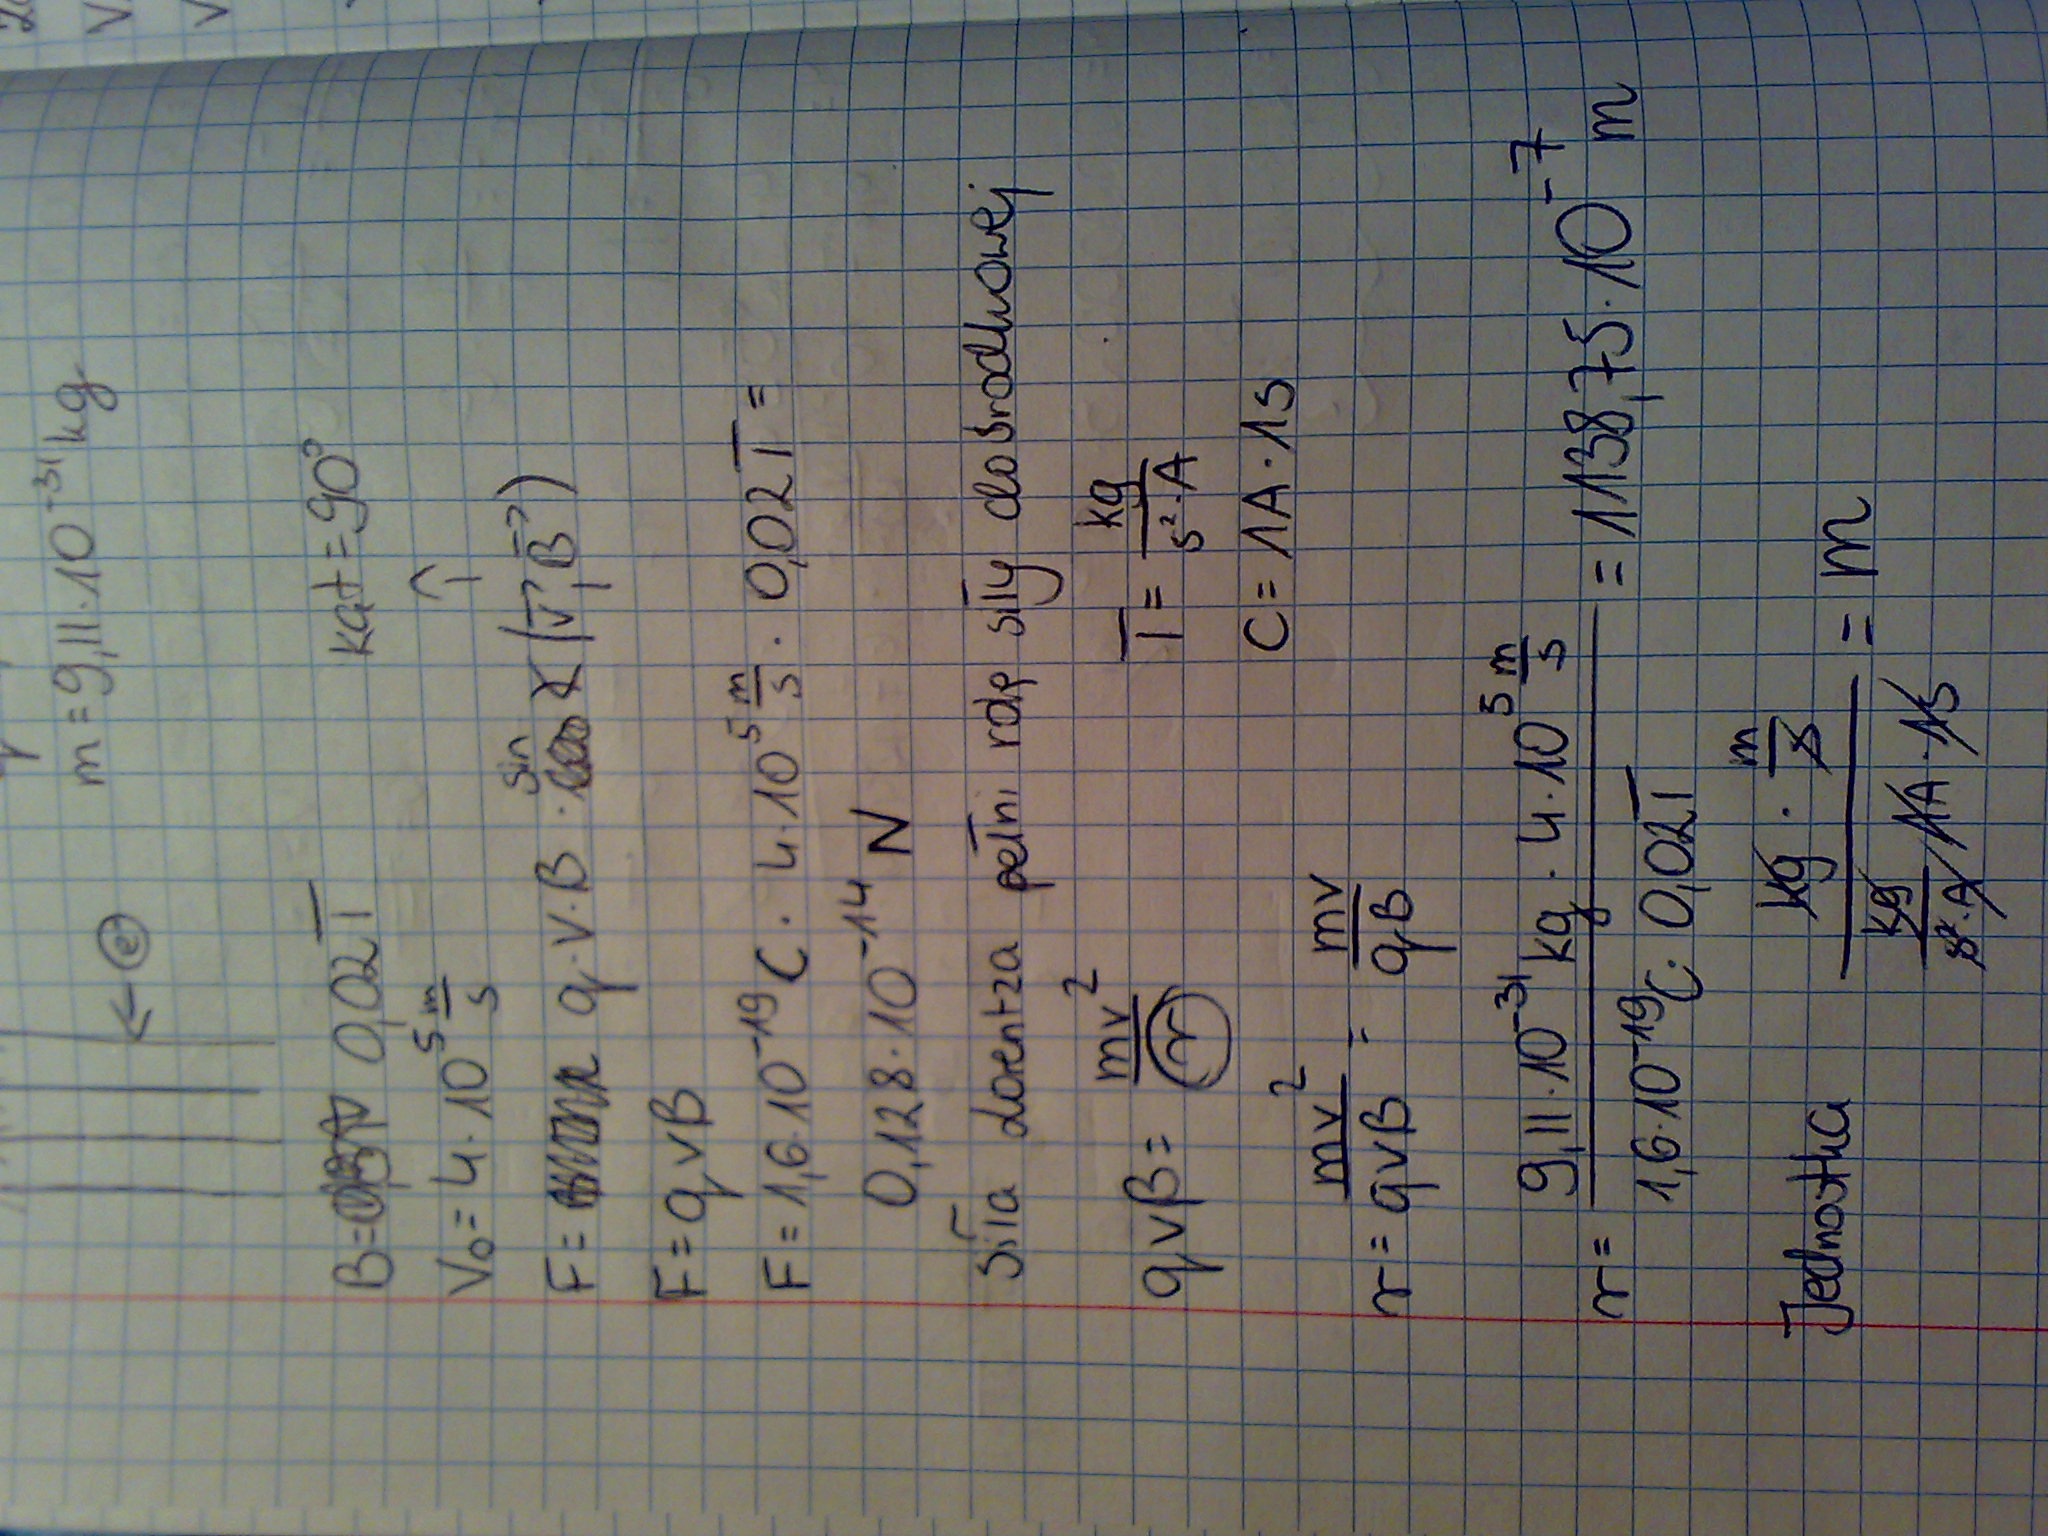 m = 9,11 · 10⁻³¹ kg
← e⁻
B = 0,02T kąt = 90°
V₀ = 4 · 10⁵ m/s
F = q · v · B · sin ∢ (v⃗, B⃗)
F = qvB
F = 1,6 · 10⁻¹⁹ C · 4 · 10⁵ m/s · 0,02T =
0,128 · 10⁻¹⁴ N
Siła Lorentza pełni rolę siły dośrodkowej
qvB = mv²/r T = kg/s²·A
C = 1A · 1s
r = mv²/qvB = mv/qB
r = 9,11 · 10⁻³¹ kg · 4 · 10⁵ m/s / 1,6 · 10⁻¹⁹ C · 0,02T = 1138,75 · 10⁻⁷ m
Jednostka kg · m/s / kg/s²·A · 1A · 1s = m